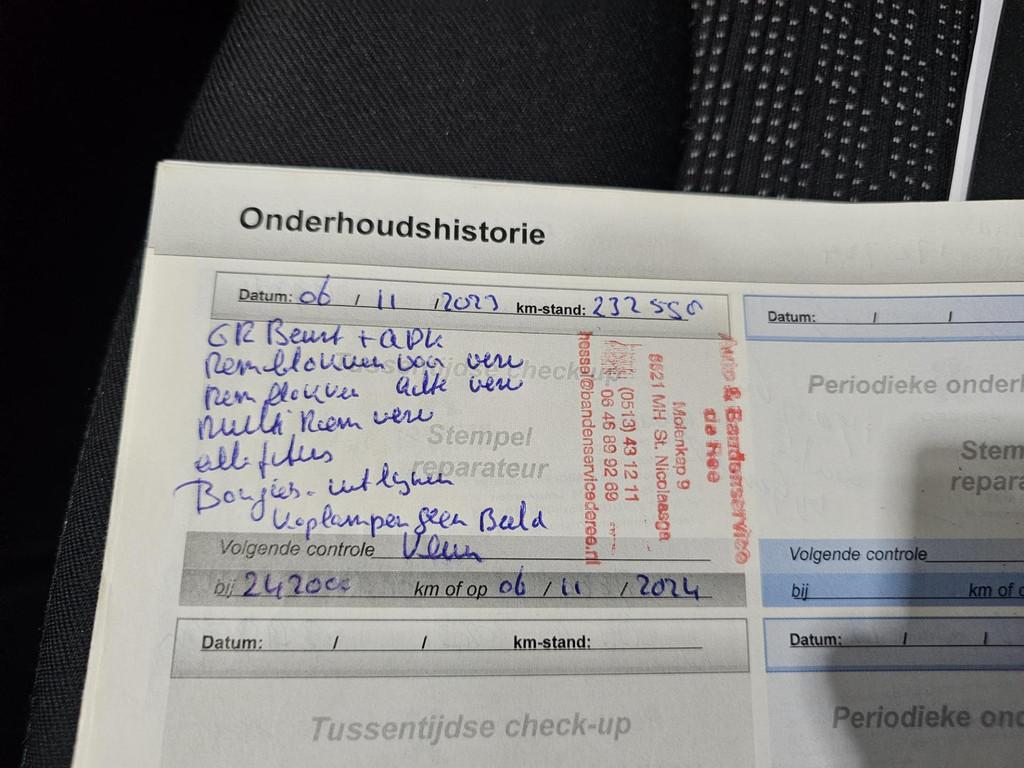 Onderhoudshistorie
Datum: 06 / 11 / 2023 km-stand: 232550
GR Beurt + APK
Remblokken voor vere
Remblokken achte vere
Multi Riem vere
alle filters
Bougies - uitlijnen
Koplampen geen Beeld
Tussentijdse check-up
Stempel
reparateur
Auto & Bandenservice
de Ree
Molenkap 9
8521 MH St. Nicolaasga
(0513) 43 12 11
06 46 89 92 69
hessel@bandenservicederee.nl
Volgende controle
bij 242000 km of op 06 / 11 / 2024
Datum: / / km-stand:
Tussentijdse check-up
Datum: / /
Periodieke onderh
Stem
repara
Volgende controle
bij km of o
Datum: / /
Periodieke ond